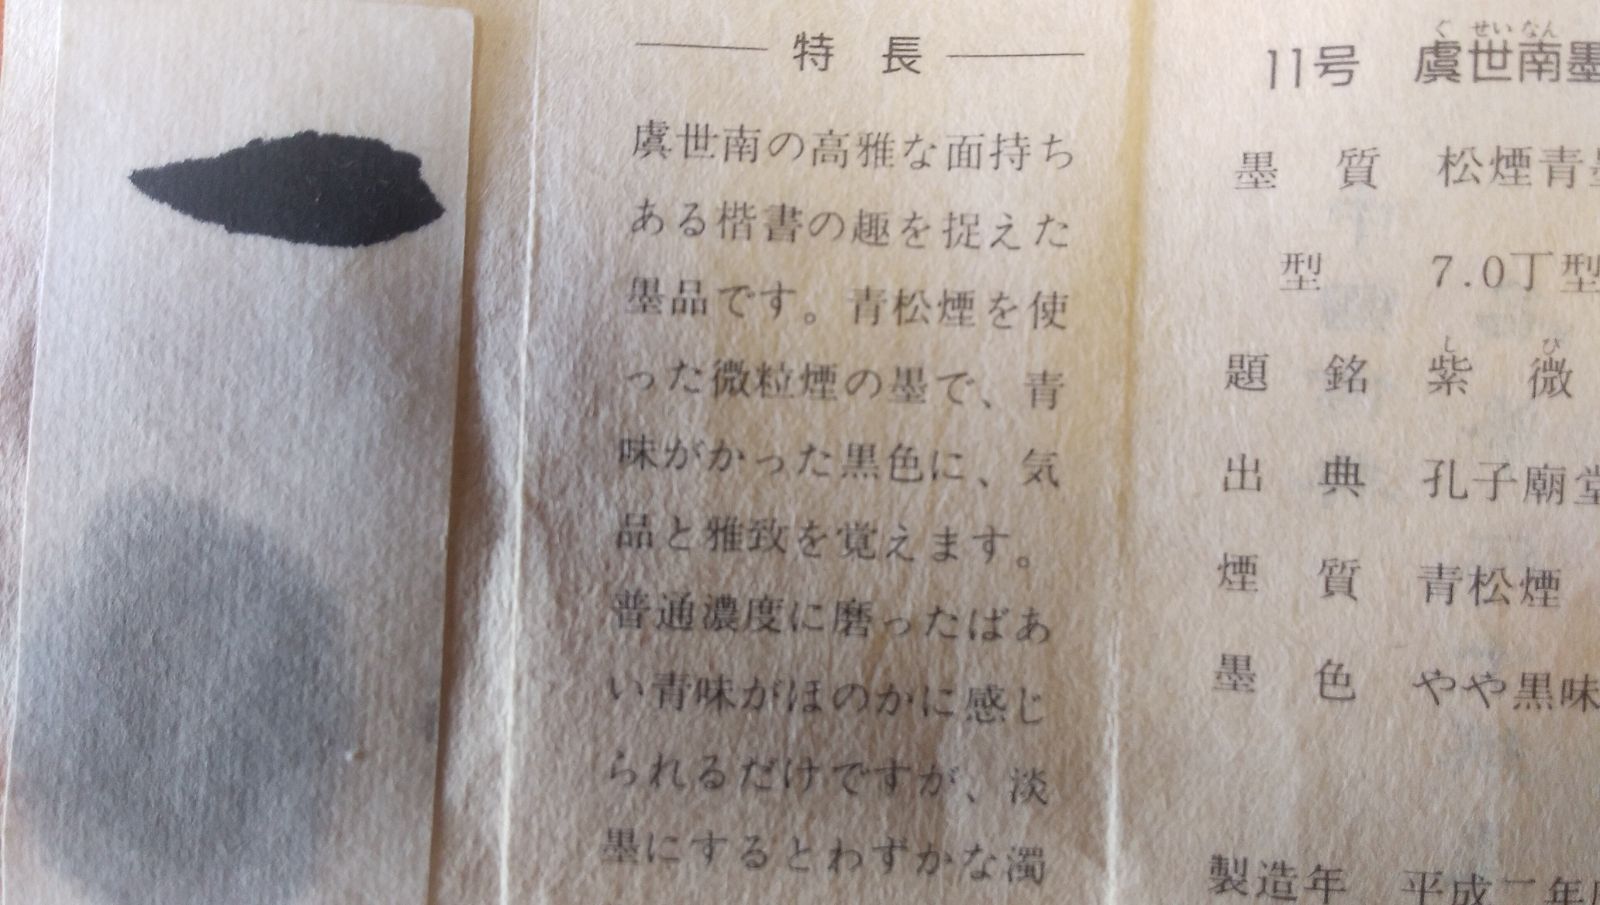 特 長
虞世南の高雅な面持ち
ある楷書の趣を捉えた
墨品です。青松煙を使
った微粒煙の墨で、青
味がかった黒色に、気
品と雅致を覚えます。
普通濃度に磨ったばあ
い青味がほのかに感じ
られるだけですが、淡
墨にするとわずかな濁
ぐ せい なん
11号 虞世南墨
墨 質 松煙青墨
型 7.0丁型
し び
題 銘 紫 微
出 典 孔子廟堂
煙 質 青松煙
墨 色 やや黒味
製造年 平成二年